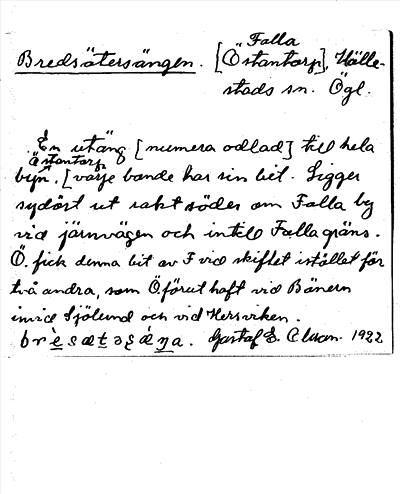 Falla
Bredsätersängen. [Östantorp], Hälle-
stads sn. Ögl.
En utäng [numera odlad] till hela
Östantorp
byn, [varje bonde har sin bit. Ligger
sydöst ut rakt söder om Falla by
vid järnvägen och intill Falla gräns.
Ö. fick denna bit av F vid skiftet istället för
två andra, som Ö förut haft vid Bänern
invid Sjölund och vid Hersviken.
Gustaf E. Olsson 1922